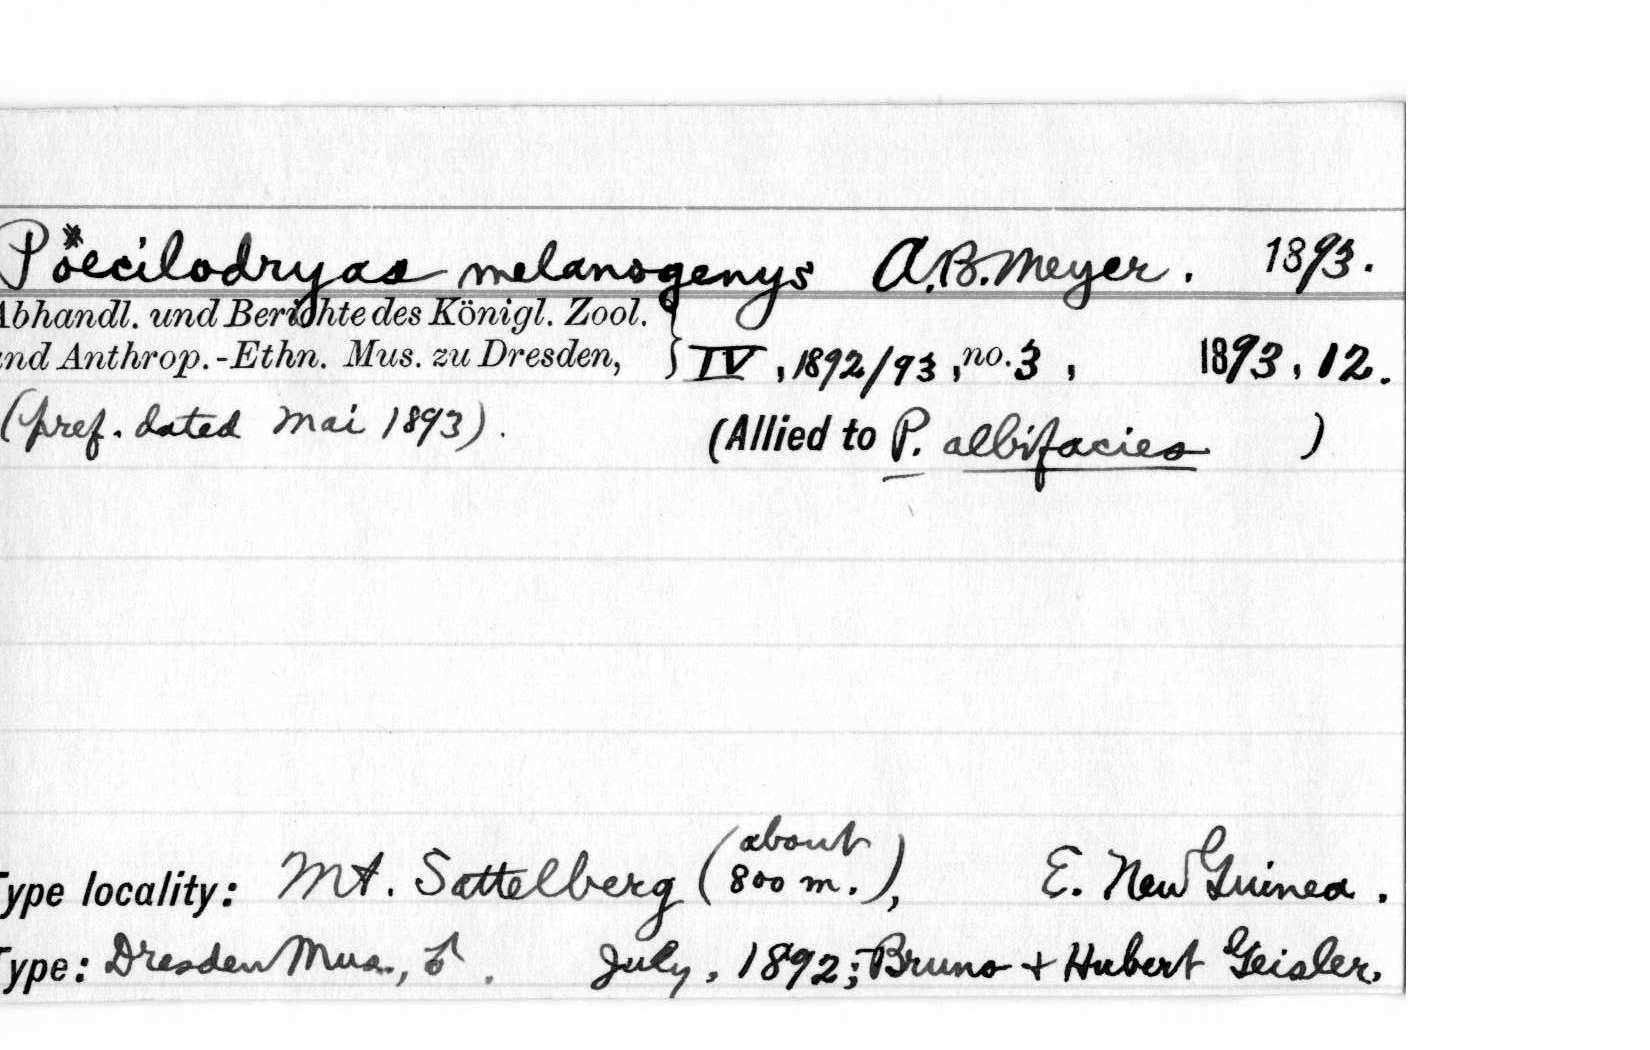 Pöecilodryas melanogenys A.B. Meyer. 1893.
Abhandl. und Berichte des Königl. Zool.
und Anthrop.-Ethn. Mus. zu Dresden, } IV, 1892/93, no. 3, 1893, 12.
(pref. dated Mai 1893). (Allied to P. albifacies )
Type locality: Mt. Sattelberg (about 800 m.), E. New Guinea.
Type: Dresden Mus., ♂. July, 1892; Bruno + Hubert Geisler.